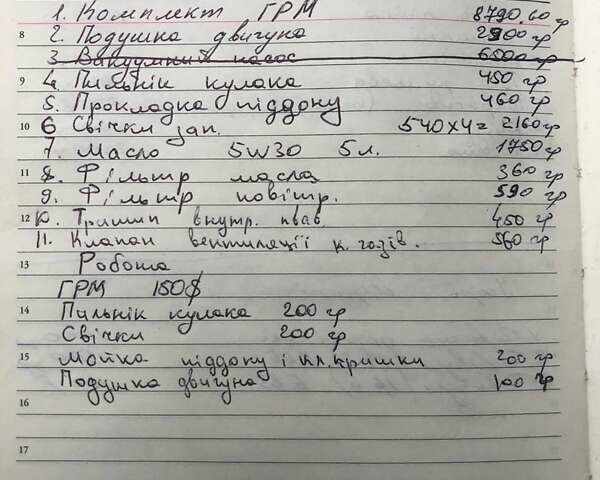 1. Комплект ГРМ 8790.60 гр
8 2. Подушка двигуна 2900 гр
3. Вакуумний насос 6500 гр
9 4. Пильнік кулака 450 гр
5. Прокладка піддону 460 гр
10 6 Свічки зап. 540x4= 2160 гр
7. Масло 5W30 5л. 1750 гр
11 8. Фільтр масла 360 гр
9. Фільтр повітр. 590 гр
12 10. Трипп внутр. прав. 450 гр
11. Клапан вентиляції к. газів. 560 гр
13 Робота
ГРМ 150$
14 Пильнік кулака 200 гр
Свічки 200 гр
15 Мойка піддону і кл. кришки 200 гр
Подушка двигуна 100 гр
16
17